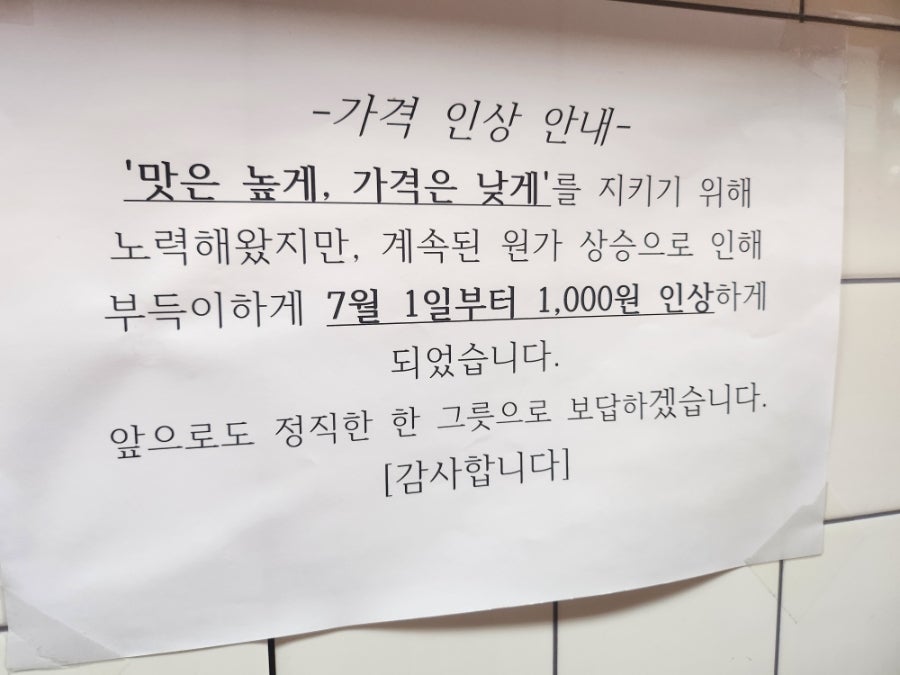 -가격 인상 안내-
'맛은 높게, 가격은 낮게'를 지키기 위해
노력해왔지만, 계속된 원가 상승으로 인해
부득이하게 7월 1일부터 1,000원 인상하게
되었습니다.
앞으로도 정직한 한 그릇으로 보답하겠습니다.
[감사합니다]